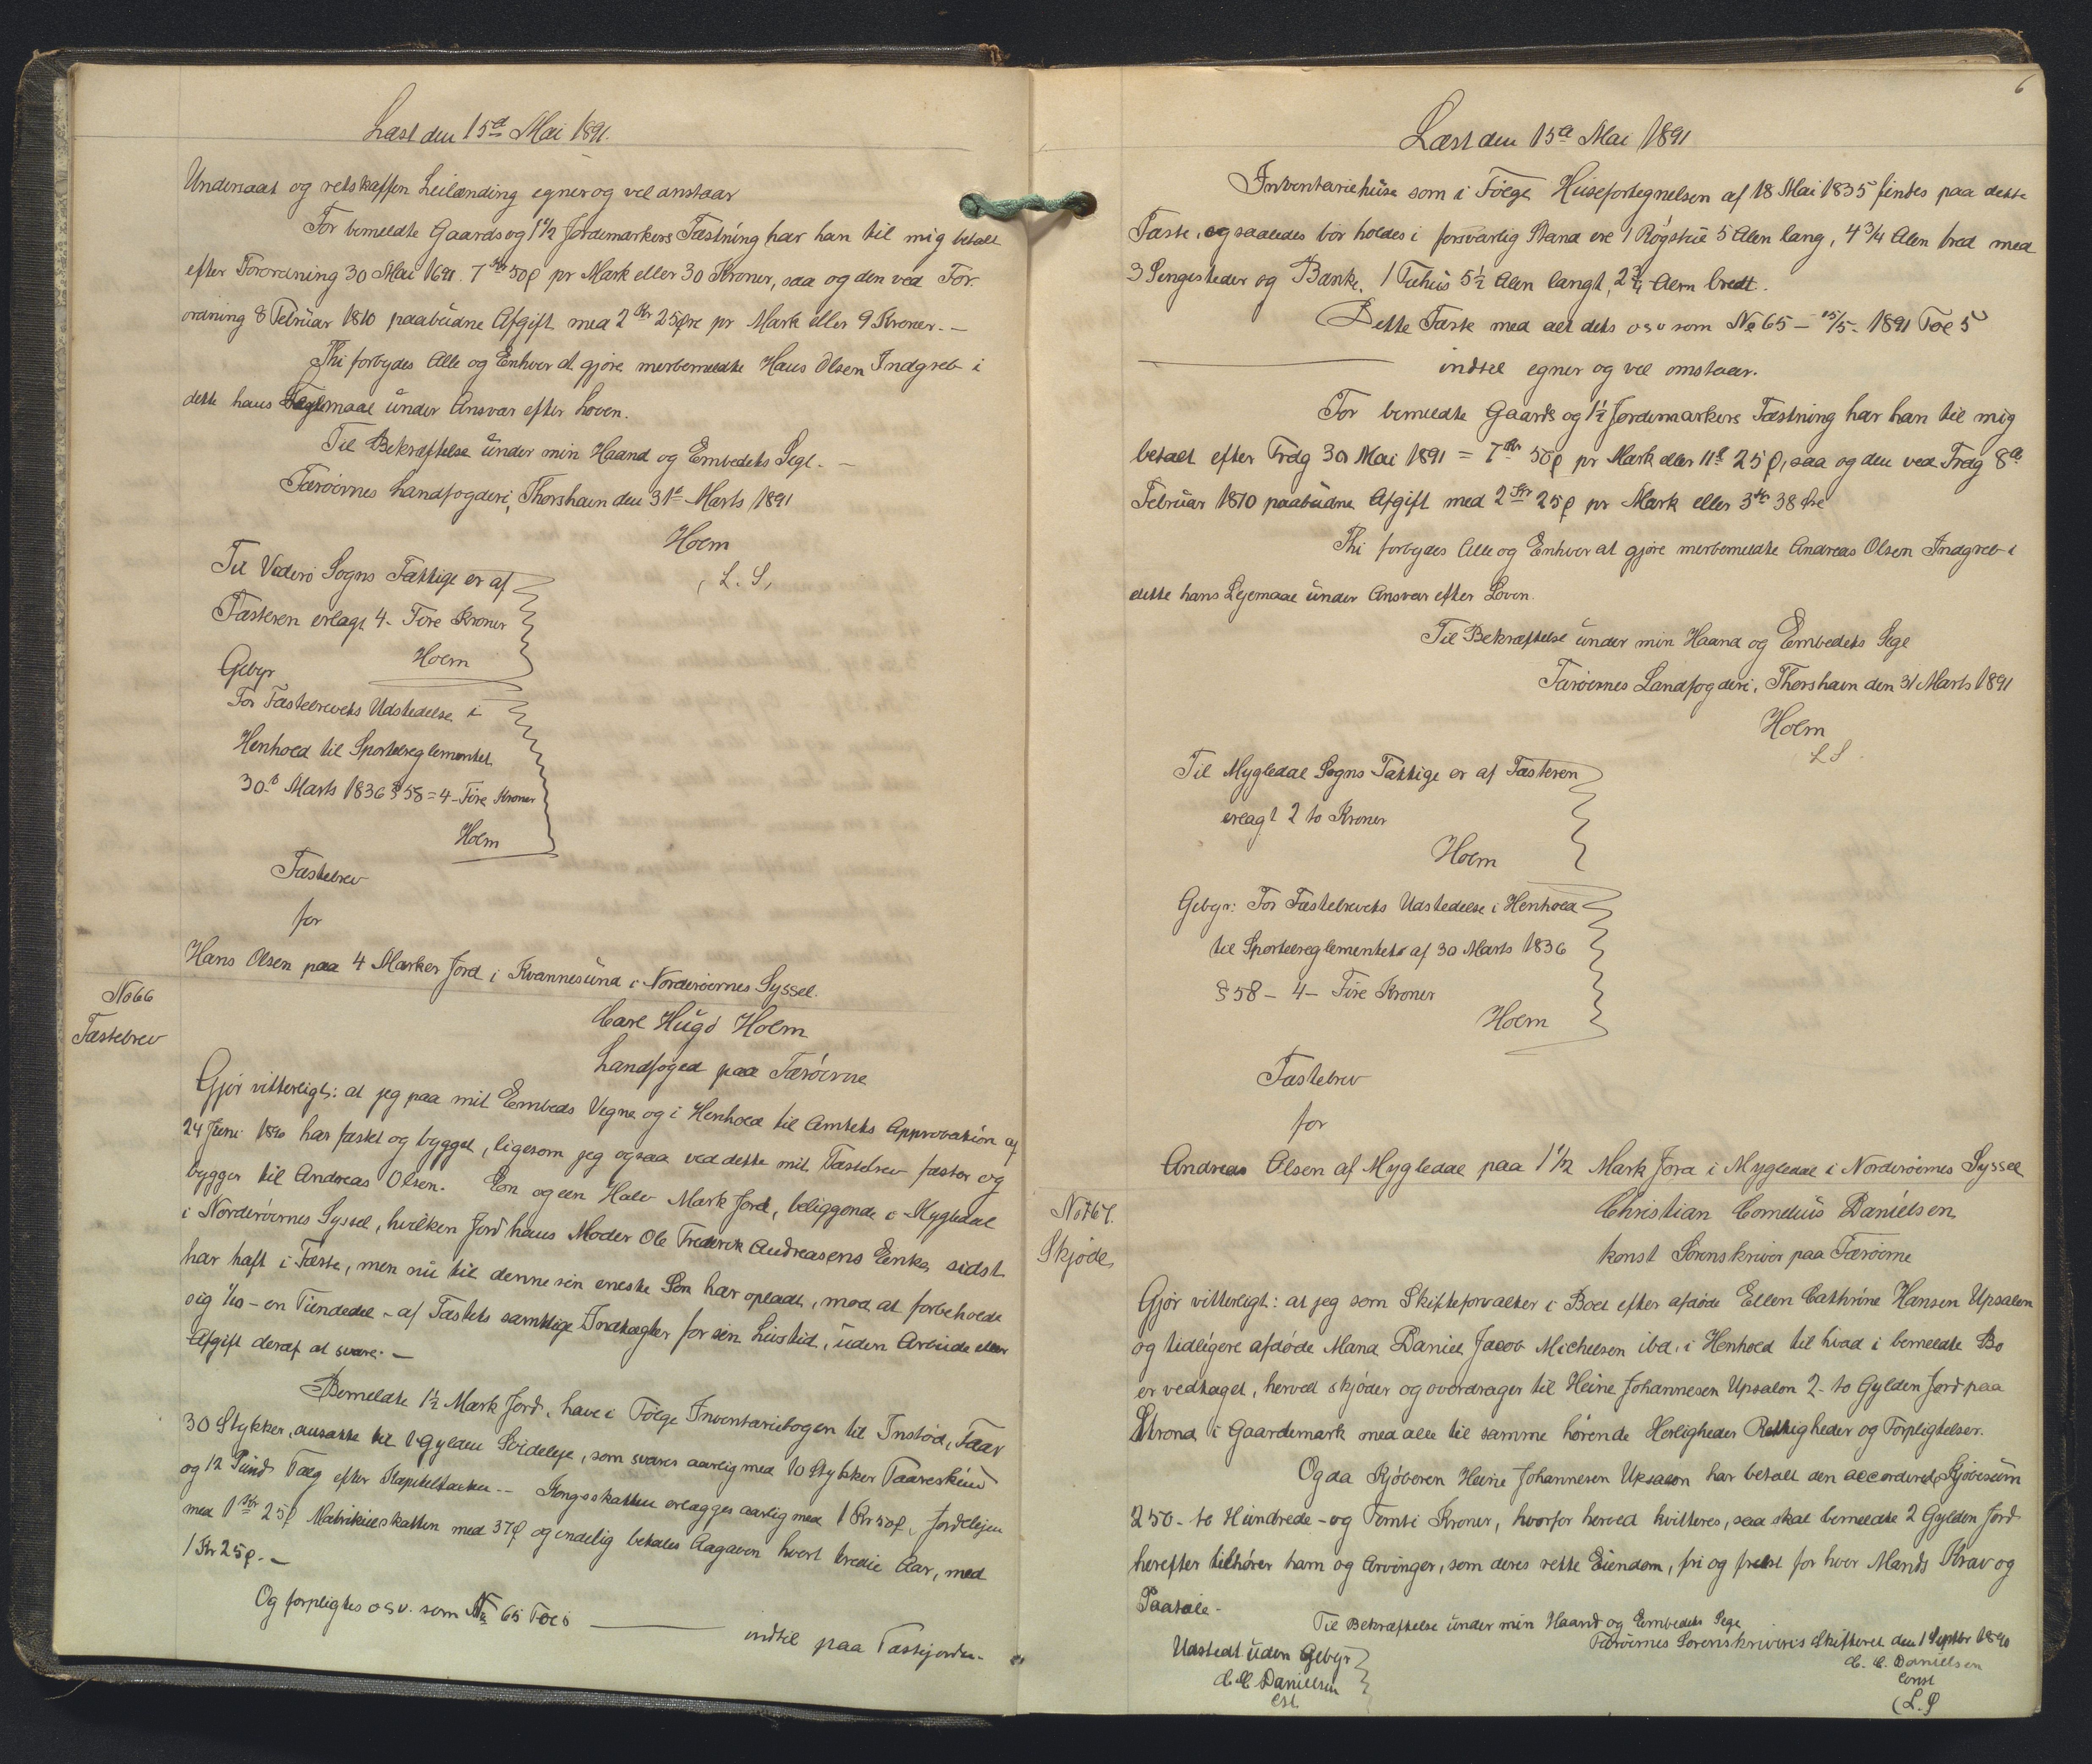 Læst den 15d Mai 1891.
Undersaat og retskaffen Leilænding egner og vel anstaar
For bemeldte Gaards og 1½ Jordemarkers Fæstning har han til mig betalt
efter Forordning 30 Mai 1691. 7 Kr 50 ø pr Mark eller 30 Kroner, saa og den ved For-
ordning 8 Februar 1810 paabudne Afgift med 2 Kr 25 Øre pr Mark eller 9 Kroner. -
Thi forbydes Alle og Enhver at gjøre merbemeldte Hans Olsen Indgreb i
dette hans maal under Ansvar efter Loven.
Til Bekræftelse under min Haand og Embedets Segl. -
Færøernes Landfogderi, Thorshavn den 31te Marts 1891
Holm
(L. S.)
Til Viderø Sogns Fattige er af
Fæsteren erlagt 4 - Fire Kroner
Holm
Gebyr
For Fæstebrevets Udstedelse i
Henhold til Sportelreglementet
30te Marts 1836 § 58 = 4 - Fire Kroner
Holm
Fæstebrev
for
Hans Olsen paa 4 Marker Jord i Kvannesund i Norderøernes Syssel.
No 66
Fæstebrev
Carl Hugo Holm
Landfoged paa Færøerne
Gjør vitterligt: at jeg paa mit Embeds Vegne og i Henhold til Amtets Approbation af
24 Juni 1890 har fæstet og bygget, ligesom jeg ogsaa ved dette mit Fæstebrev fæster og
bygger til Andreas Olsen. Een og een Halv Mark Jord, beliggende i Mygledal
i Norderøernes Syssel, hvilken Jord hans Moder Ole Frederik Andreasens Enke sidst
har haft i Fæste, men nu til denne sin eneste Søn har opladt, mod at forbeholde
sig 1/10 - en Tiendedel - af Fæstets samtlige Indtægter for sin Livstid, uden Arbeide eller
Afgift deraf at svare. -
Bemeldte 1½ Mark Jord, have i Følge Inventariebogen til Instød, Faar
30 Stykker, ansatte til 1 Gylden Leideleje, som svares aarlig med 10 Stykker Faareskind
og 12 Pund Talg efter Kapitelstaxten. - Kongsskatten erlægges aarlig med 1 Kr 50 ø, Jordlejen
med 1 Kr 25 ø Matrikulskatten med 37 ø og endelig betales Aagaven hvert tredie Aar, med
1 Kr 25 ø. -
Og forpligtes osv. som No 65 Fol 5 ——— indtil paa Fæstejorden.
6
Læst den 15d Mai 1891
Inventariehuse som i Følge Husefortegnelsen af 18 Mai 1835 findes paa dette
Fæste, og saaledes bør holdes i forsvarlig Stand ere 1 Røgstue 5 Alen lang, 4 3/4 Alen bred med
3 Sengesteder og Bænke, 1 Fæhus 5 1/2 Alen langt, 2 3/4 Alen bredt.
Dette Fæste med alt dets osv som No 65 - 15/5 - 1891 Fol 5
——— indtil egner og vel anstaar.
For bemeldte Gaards og 1½ Jordemarkers Fæstning har han til mig
betalt efter Frdg 30 Mai 1891 = 7 Kr 50 ø pr Mark eller 11 Kr 25 ø, saa og den ved Frdg 8de
Februar 1810 paabudne Afgift med 2 Kr 25 ø pr Mark eller 3 Kr 38 Øre
Thi forbydes Alle og Enhver at gjøre merbemeldte Andreas Olsen Indgreb i
dette hans Lejemaal under Ansvar efter Loven.
Til Bekræftelse under min Haand og Embedets Segl
Færøernes Landfogderi, Thorshavn den 31 Marts 1891
Holm
L S.
Til Mygledal Sogns Fattige er af Fæsteren
erlagt 2 to Kroner
Holm
Gebyr: For Fæstebrevets Udstedelse i Henhold
til Sportelreglementets af 30 Marts 1836
§ 58 - 4 - Fire Kroner
Holm
Fæstebrev
for
Andreas Olsen af Mygledal paa 1½ Mark Jord i Mygledal i Norderøernes Syssel
No 67.
Skjøde
Christian Cornelius Danielsen
konst Sorenskriver paa Færøerne
Gjør vitterligt: at jeg som Skifteforvalter i Boet efter afdøde Ellen Cathrine Hansen Upsalen
og tidligere afdøde Mand Daniel Jacob Michelsen ibd. i Henhold til hvad i bemeldte Bo
er vedtaget, herved skjøder og overdrager til Heine Johannesen Upsalen 2 - to Gylden Jord paa
Strond i Gaardemark med alle til samme hørende Herligheder Rettigheder og Forpligtelser.
Og da Kjøberen Heine Johannesen Upsalen har betalt den accorderede Kjøbesum
250 - to Hundrede - og Femti Kroner, hvorfor herved kvitteres, saa skal bemeldte 2 Gylden Jord
herefter tilhører ham og Arvinger, som deres rette Eiendom, fri og frelst for hver Mands Krav og
Paatale -
Til Bekræftelse under min Haand og Embedets Segl
Færøernes Sorenskriveri's Skifteret den 1 Septbr 1890
C. C. Danielsen
const
(L. S)
Udstedt uden Gebyr
C C Danielsen
cst.